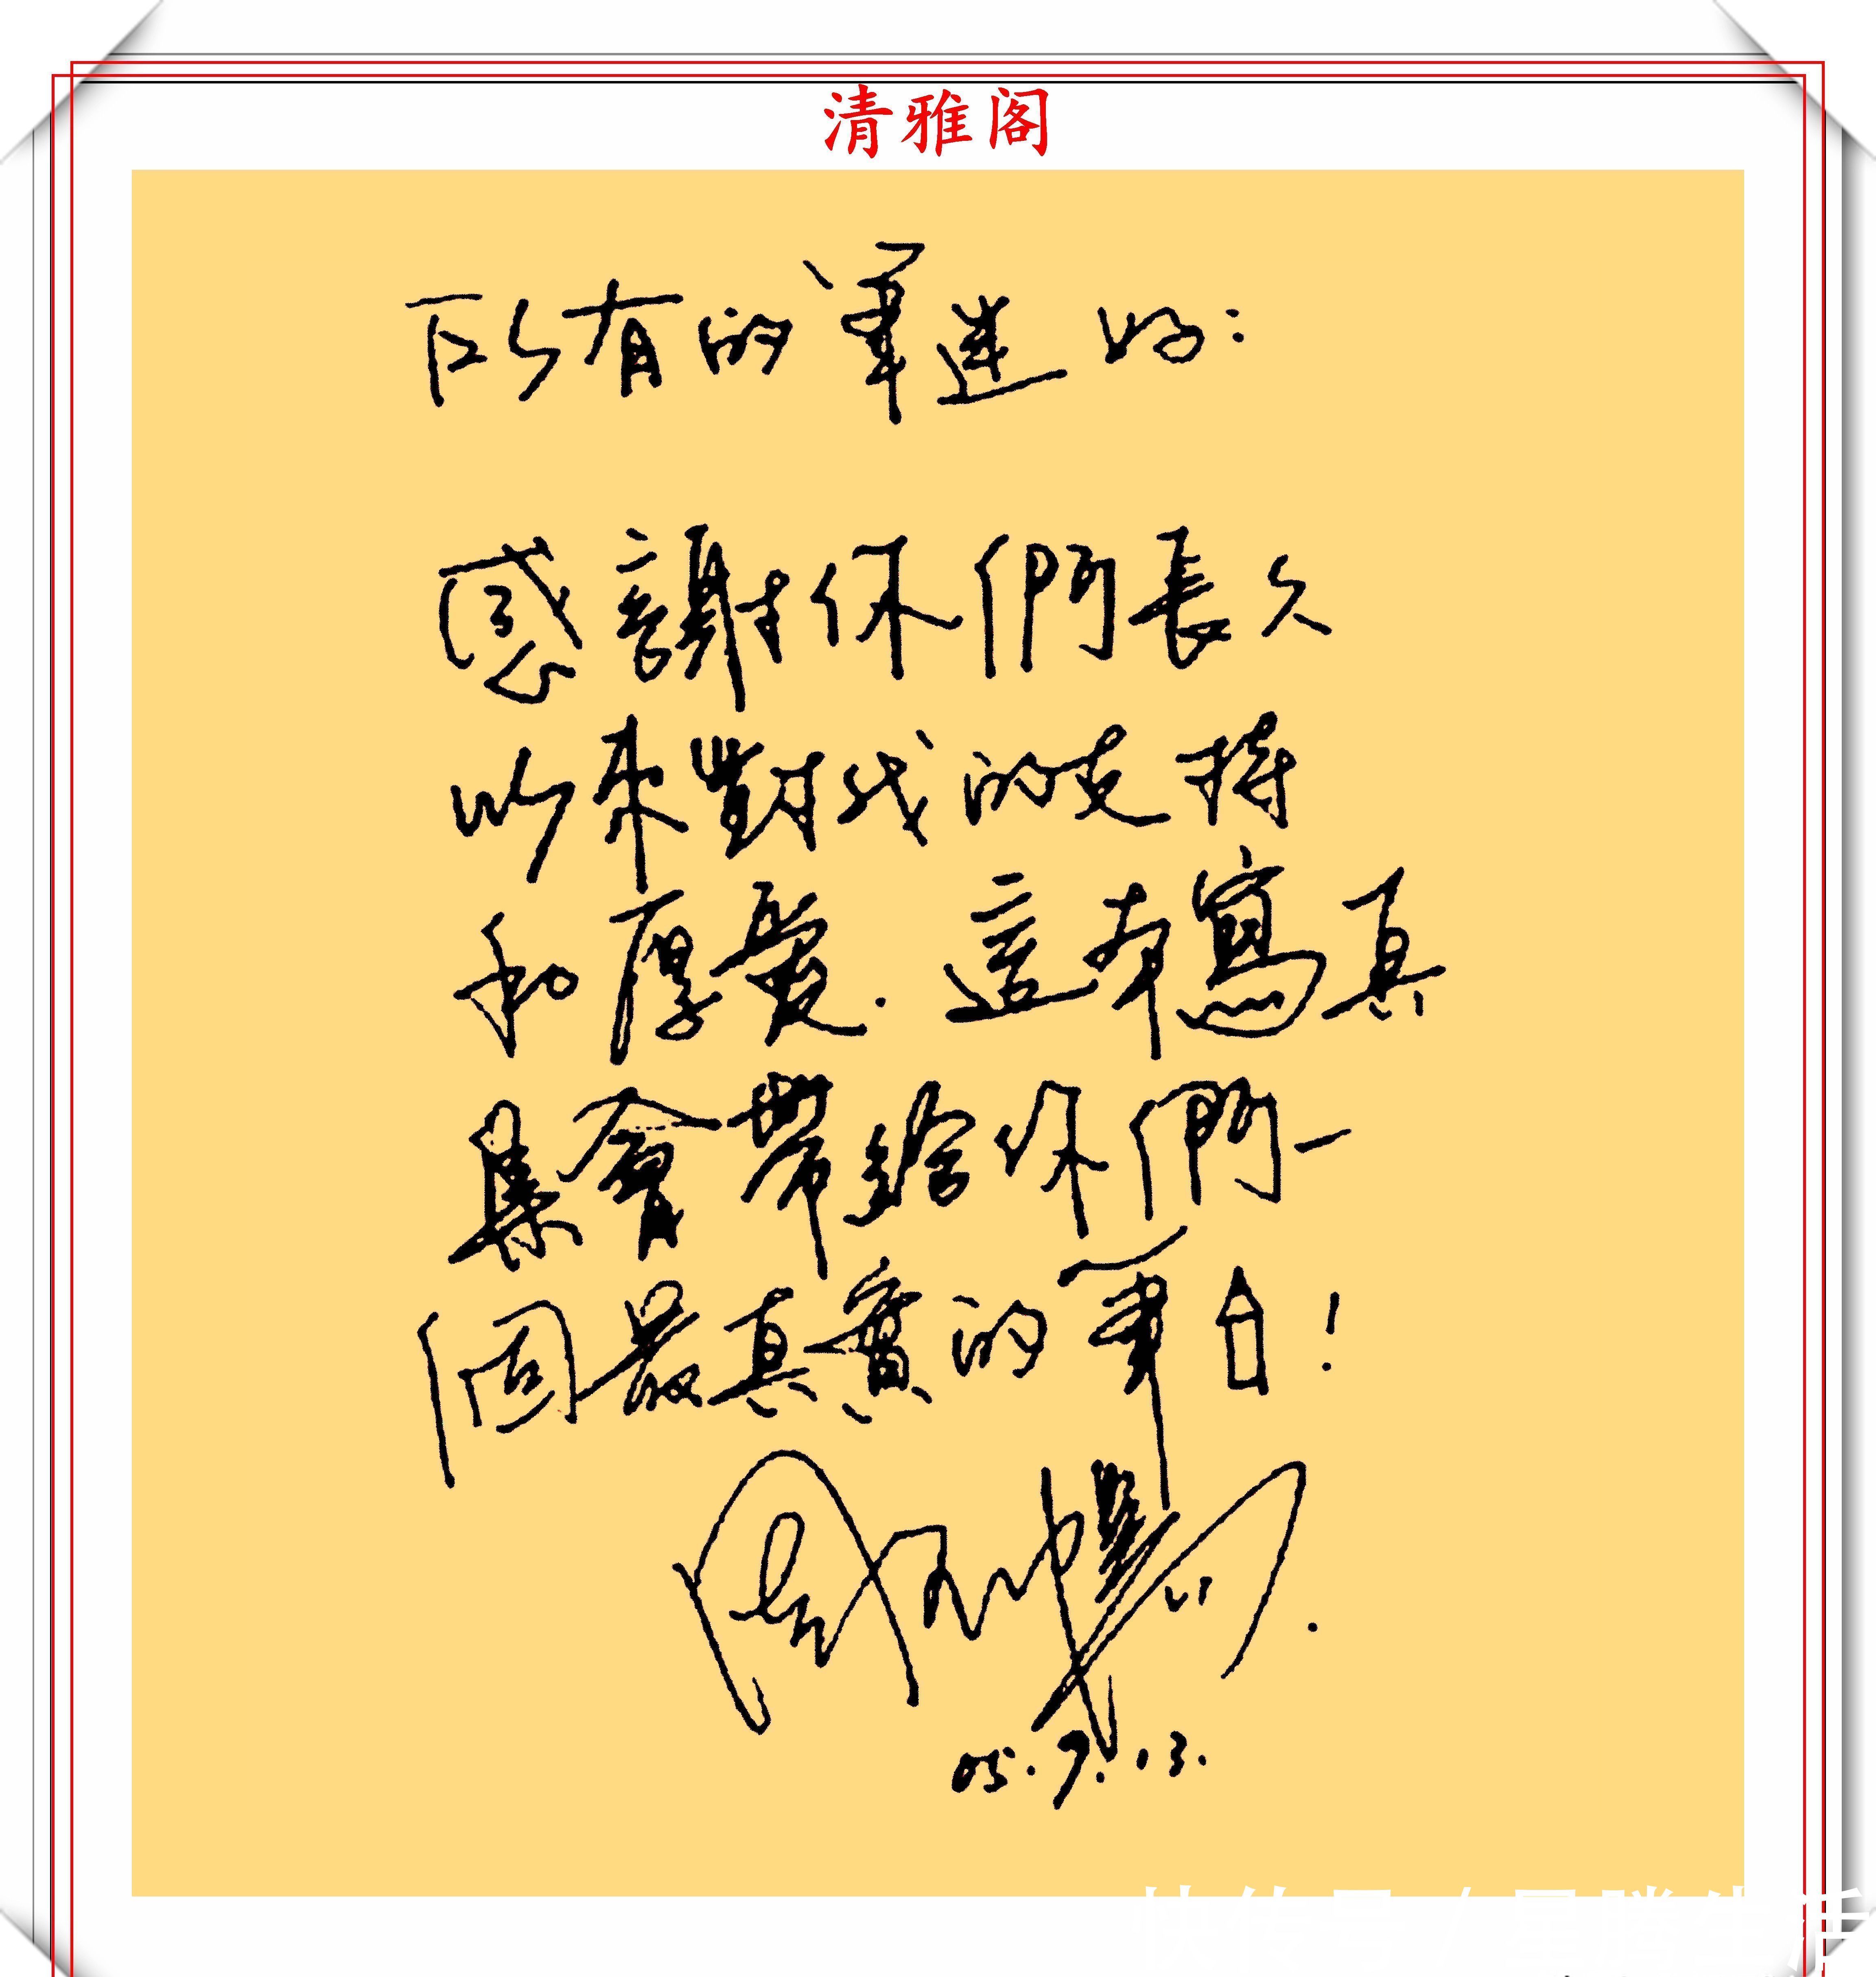 清雅阁
所有的筆迷好：
感謝你們長久
以來對我的支持
和厚愛．這本寫真
集會帶給你們一
個最真實的筆自！
05.9.13.